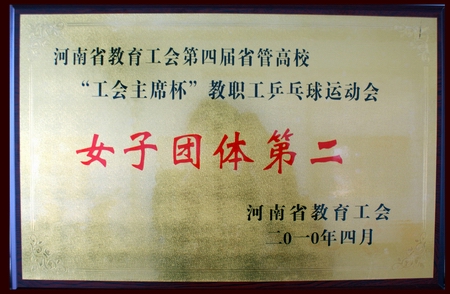 河南省教育工会第四届省管高校
“工会主席杯”教职工乒乓球运动会
女子团体第二
河南省教育工会
二0一0年四月